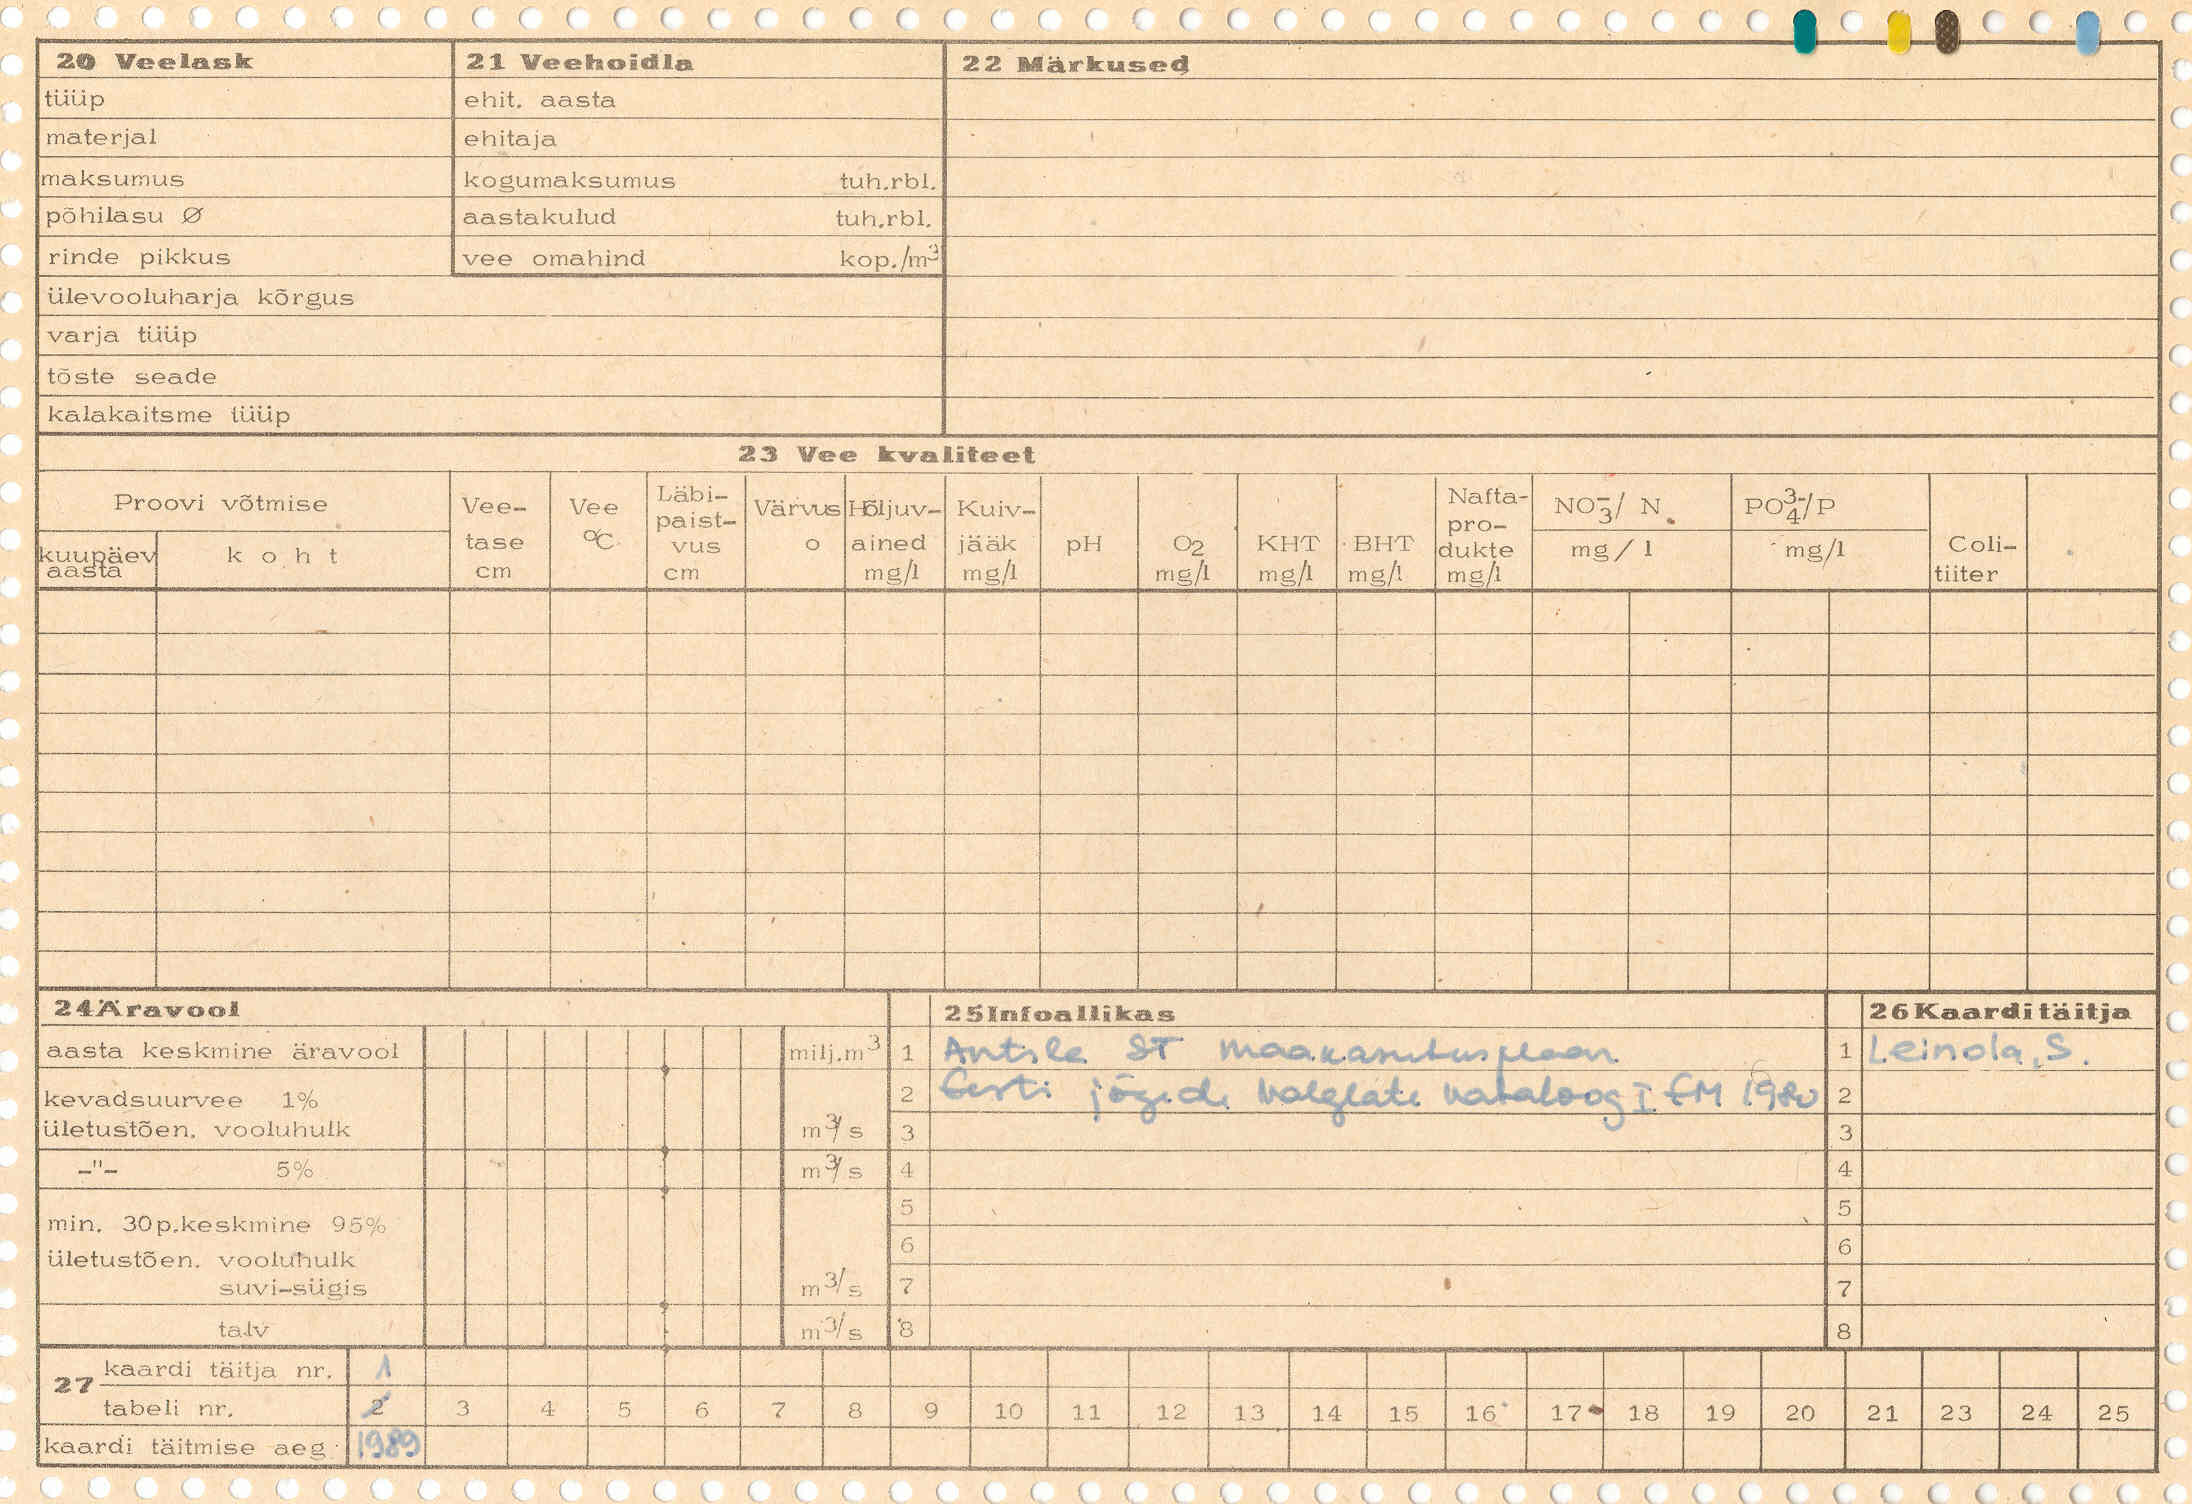 20 Veelask
tüüp
materjal
maksumus
põhilasu Ø
rinde pikkus
ülevooluharja kõrgus
varja tüüp
tõste seade
kalakaitsme tüüp
21 Veehoidla
ehit. aasta
ehitaja
kogumaksumus tuh.rbl.
aastakulud tuh.rbl.
vee omahind kop./m³
22 Märkused
23 Vee kvaliteet
Proovi võtmise
kuupäev aasta
koht
Vee-
tase
cm
Vee
°C
Läbi-
paist-
vus
cm
Värvus
o
Hõljuv-
ained
mg/l
Kuiv-
jääk
mg/l
pH
O2
mg/l
KHT
mg/l
BHT
mg/l
Nafta-
pro-
dukte
mg/l
NO₃⁻/ N
mg/l
PO₄³⁻/P
mg/l
Coli-
tiiter
24 Äravool
aasta keskmine äravool milj.m³
kevadsuurvee 1%
ületustõen. vooluhulk m³/s
-"- 5% m³/s
min. 30p.keskmine 95%
ületustõen. vooluhulk
suvi-sügis m³/s
talv m³/s
25 Infoallikas
1 Antsla ST maakasutusplaan
2 Eesti jõgede valglate kataloog I EM 1980
3
4
5
6
7
8
26 Kaarditäitja
1 Leinola, S.
2
3
4
5
6
7
8
27 kaardi täitja nr. 1
tabeli nr. 2 3 4 5 6 7 8 9 10 11 12 13 14 15 16 17 18 19 20 21 23 24 25
kaardi täitmise aeg 1989